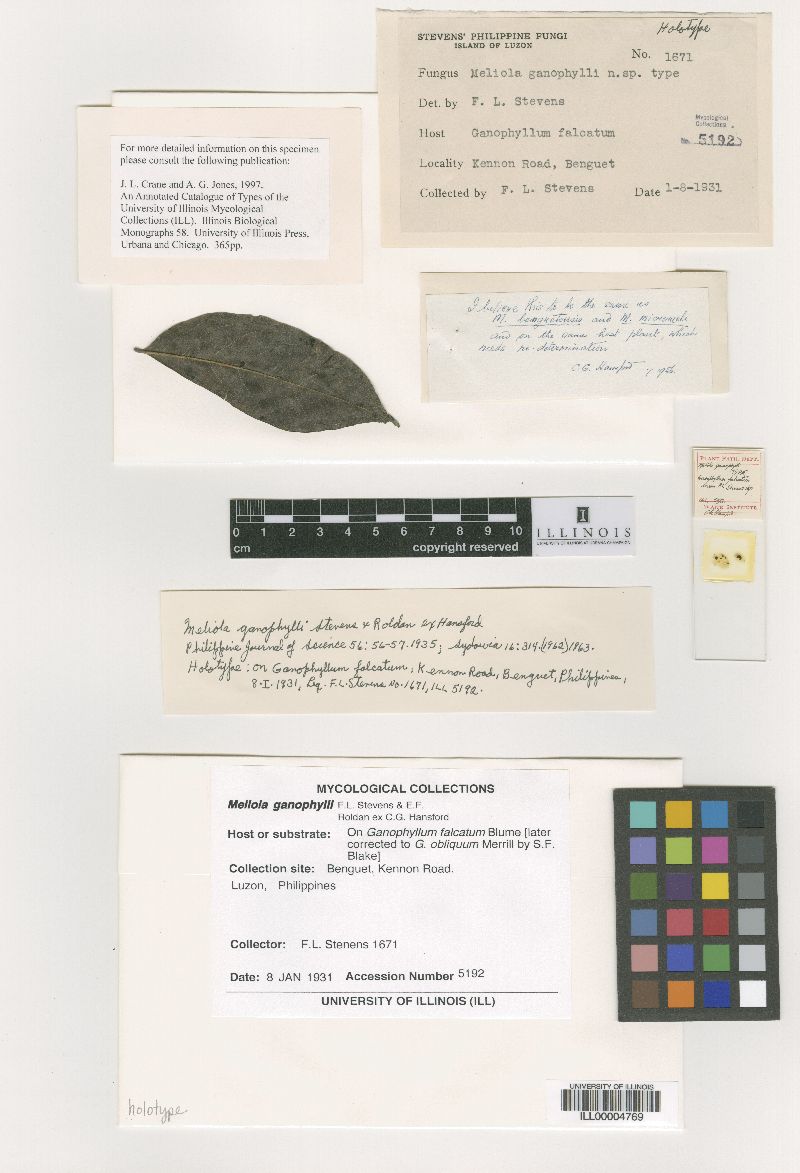 Holotype
STEVENS' PHILIPPINE FUNGI
ISLAND OF LUZON
No. 1671
Fungus Meliola ganophylli n.sp. type
Det. by F. L. Stevens
Mycological
Collections
No. 5192
Host Ganophyllum falcatum
Locality Kennon Road, Benguet
Collected by F. L. Stevens Date 1-8-1931
For more detailed information on this specimen
please consult the following publication:
J. L. Crane and A. G. Jones, 1997.
An Annotated Catalogue of Types of the
University of Illinois Mycological
Collections (ILL). Illinois Biological
Monographs 58. University of Illinois Press,
Urbana and Chicago. 365pp.
I believe this to be the same as
M. benguetensis and M. micromera
and on the same host plant, which
needs re-determination
C.G. Hansford 1956.
PLANT PATH. DEPT.
WAITE INSTITUTE
0 1 2 3 4 5 6 7 8 9 10
cm copyright reserved
I
ILLINOIS
UNIVERSITY OF ILLINOIS AT URBANA-CHAMPAIGN
Meliola ganophylli Stevens & Roldan ex Hansford
Philippine Journal of Science 56: 56-57. 1935; Sydowia 16: 314. (1962) 1963.
Holotype: on Ganophyllum falcatum, Kennon Road, Benguet, Philippines,
8. I. 1931, Leg. F.L. Stevens No. 1671, ILL 5192.
MYCOLOGICAL COLLECTIONS
Meliola ganophylli F.L. Stevens & E.F.
Roldan ex C.G. Hansford
Host or substrate: On Ganophyllum falcatum Blume [later
corrected to G. obliquum Merrill by S.F.
Blake]
Collection site: Benguet, Kennon Road.
Luzon, Philippines
Collector: F.L. Stenens 1671
Date: 8 JAN 1931 Accession Number 5192
UNIVERSITY OF ILLINOIS (ILL)
holotype
UNIVERSITY OF ILLINOIS
ILL00004769